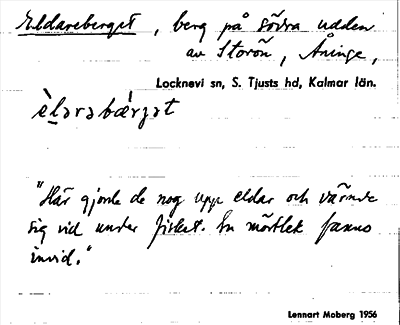 Eldareberget, berg på södra udden
av Storön, Åninge,
Locknevi sn, S. Tjusts hd, Kalmar län.
èlarabǽrʒət
"Här gjorde de nog upp eldar och värmde
sig vid under fisket. En mörtlek fanns
invid."
Lennart Moberg 1956